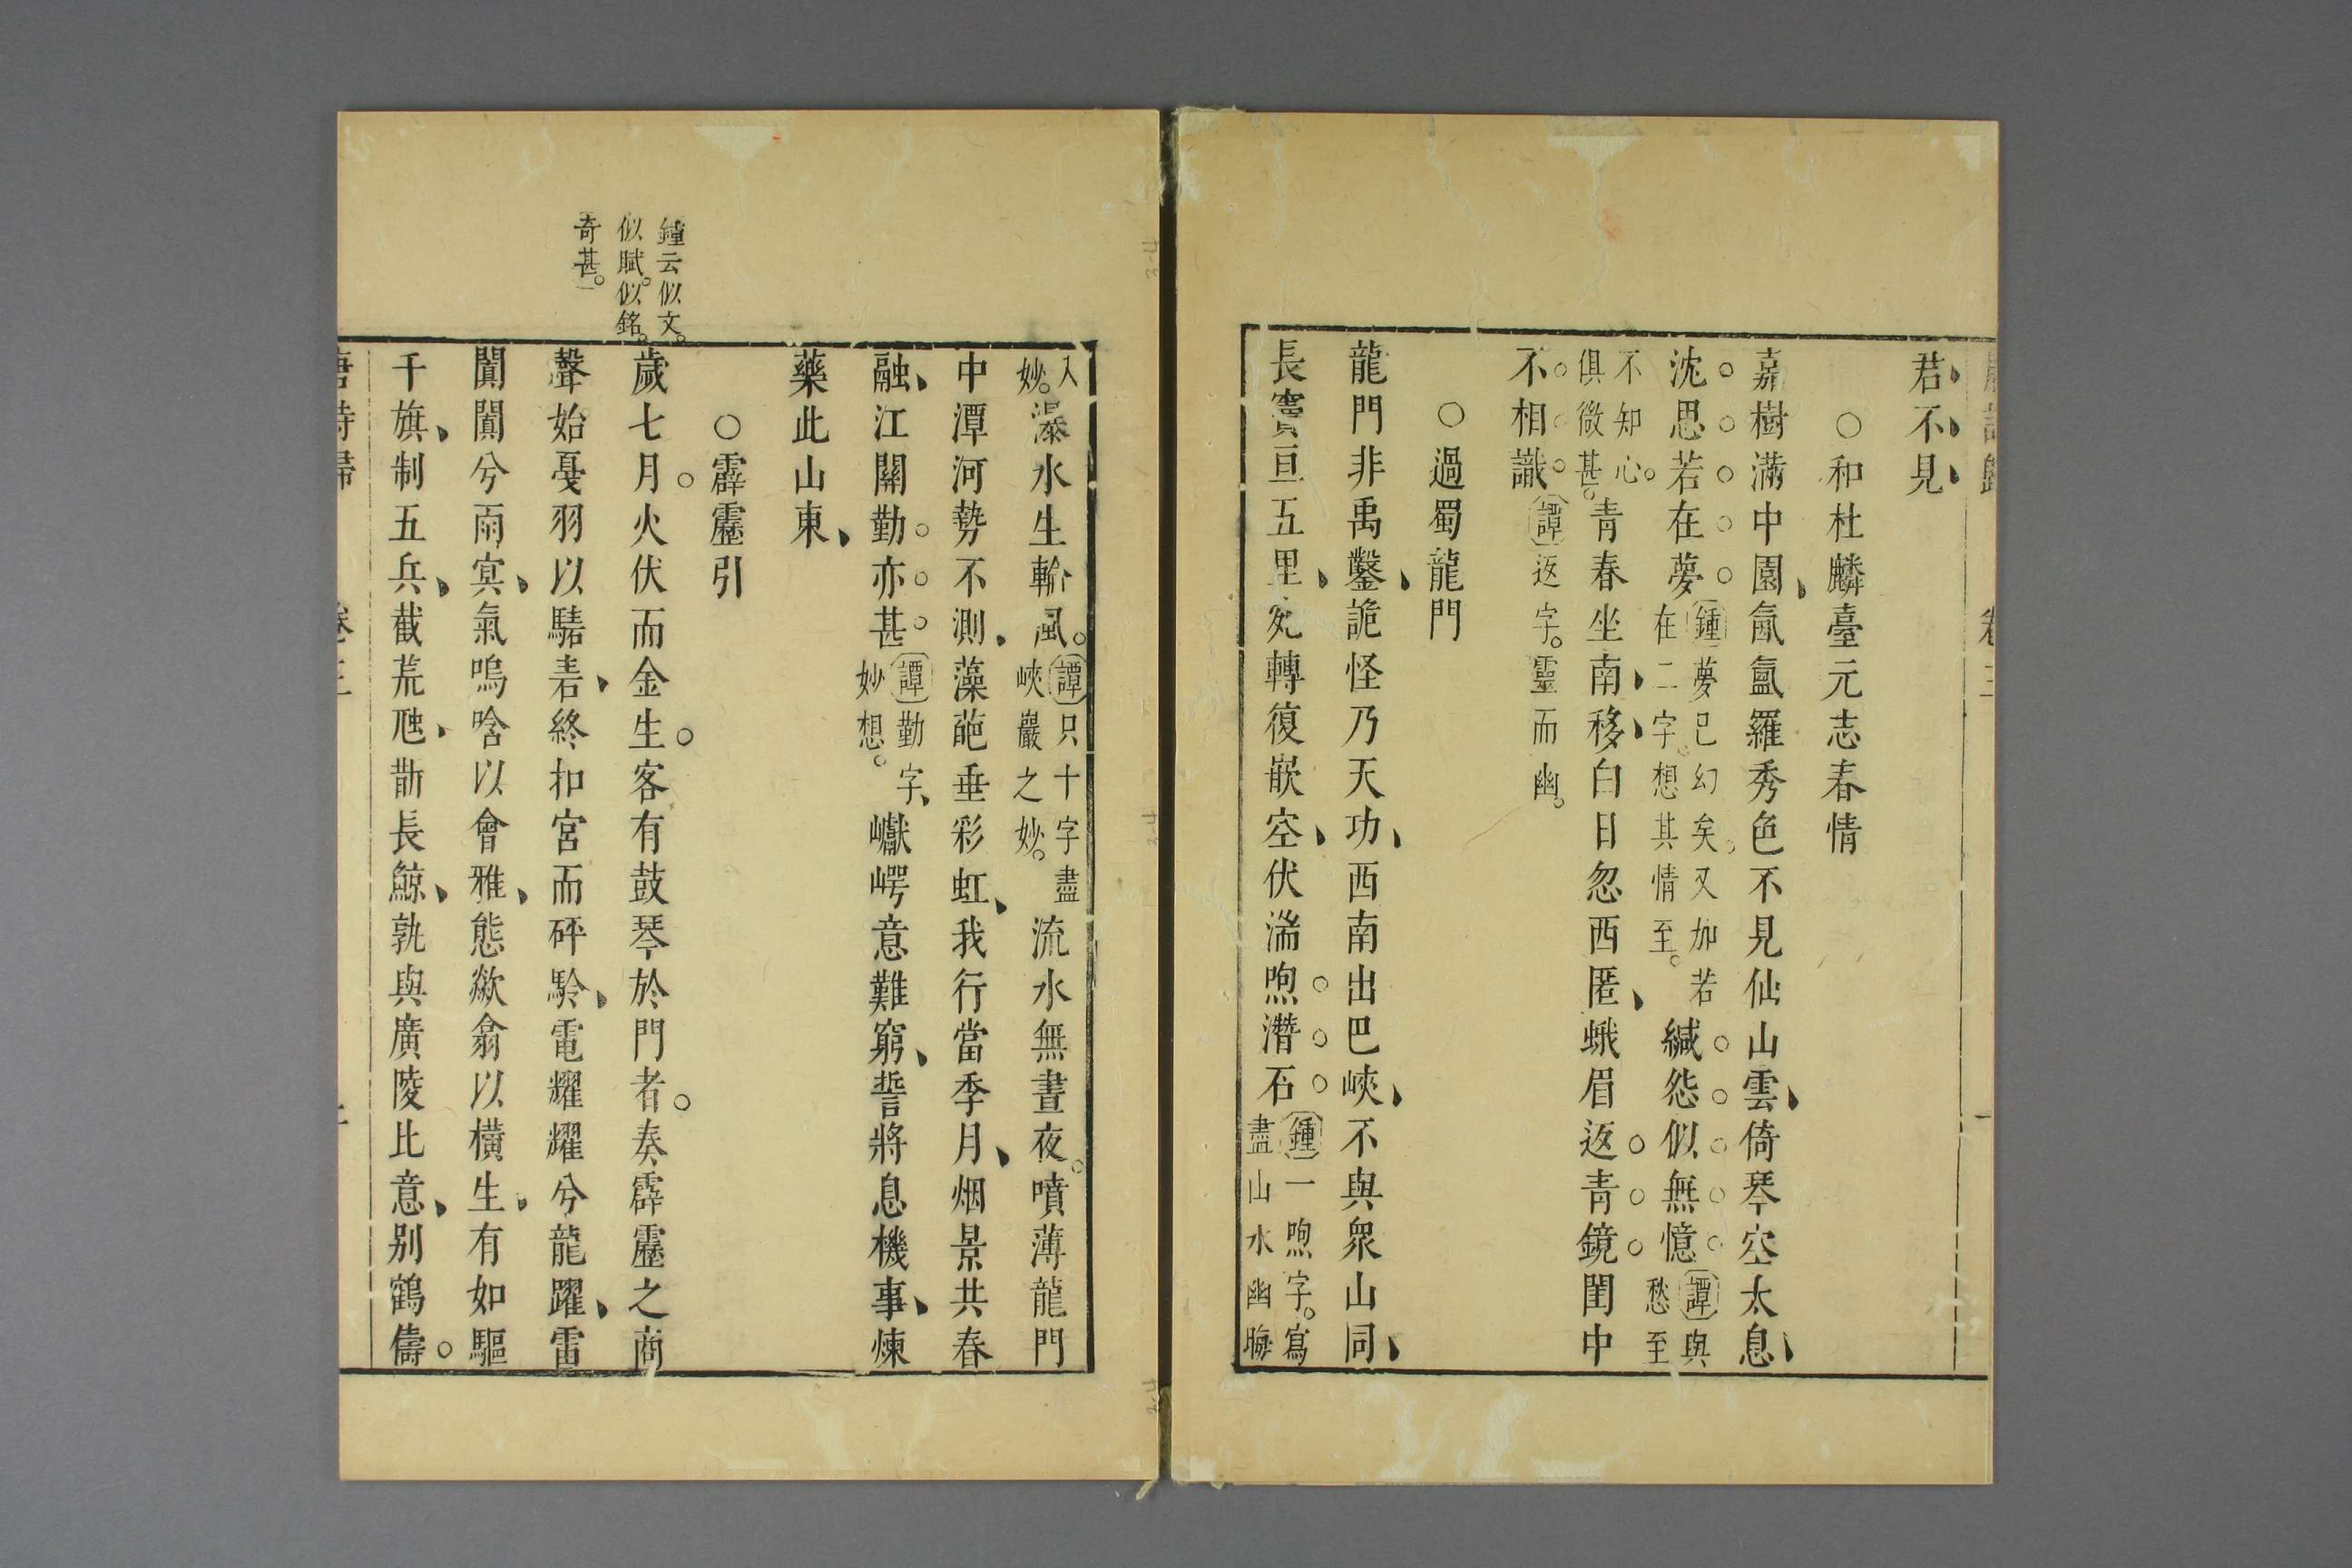 唐詩歸 卷三
君不見
○和杜麟臺元志春情
嘉樹滿中園氤氳羅秀色不見仙山雲倚琴空太息
沈思若在夢鍾夢已幻矣又加若在二字。想其情至。緘怨似無憶譚與愁至
不知心。俱微甚。青春坐南移白日忽西匿蛾眉返青鏡閨中
不相識譚返字。靈而幽。
○過蜀龍門
龍門非禹鑿詭怪乃天功西南出巴峽不與衆山同
長竇亘五里宛轉復嵌空伏湍煦潛石鍾一煦字。寫盡山水幽晦
入妙。瀑水生輪風。譚只十字盡峽巖之妙。流水無晝夜。噴薄龍門
中潭河勢不測藻葩垂彩虹我行當季月烟景共春
融江關勤亦甚譚勤字妙想。巘崿意難窮誓將息機事煉
藥此山東
鍾云似文。
似賦。似銘。
奇甚。
○霹靂引
歲七月。火伏而金生。客有鼓琴於門者。奏霹靂之商
聲始戛羽以騞砉終扣宮而砰駖電耀耀兮龍躍雷
闐闐兮雨冥氣嗚唅以會雅態歘翕以橫生有如驅
千旗制五兵截荒虺斮長鯨孰與廣陵比意別鶴儔。
唐詩歸 卷三